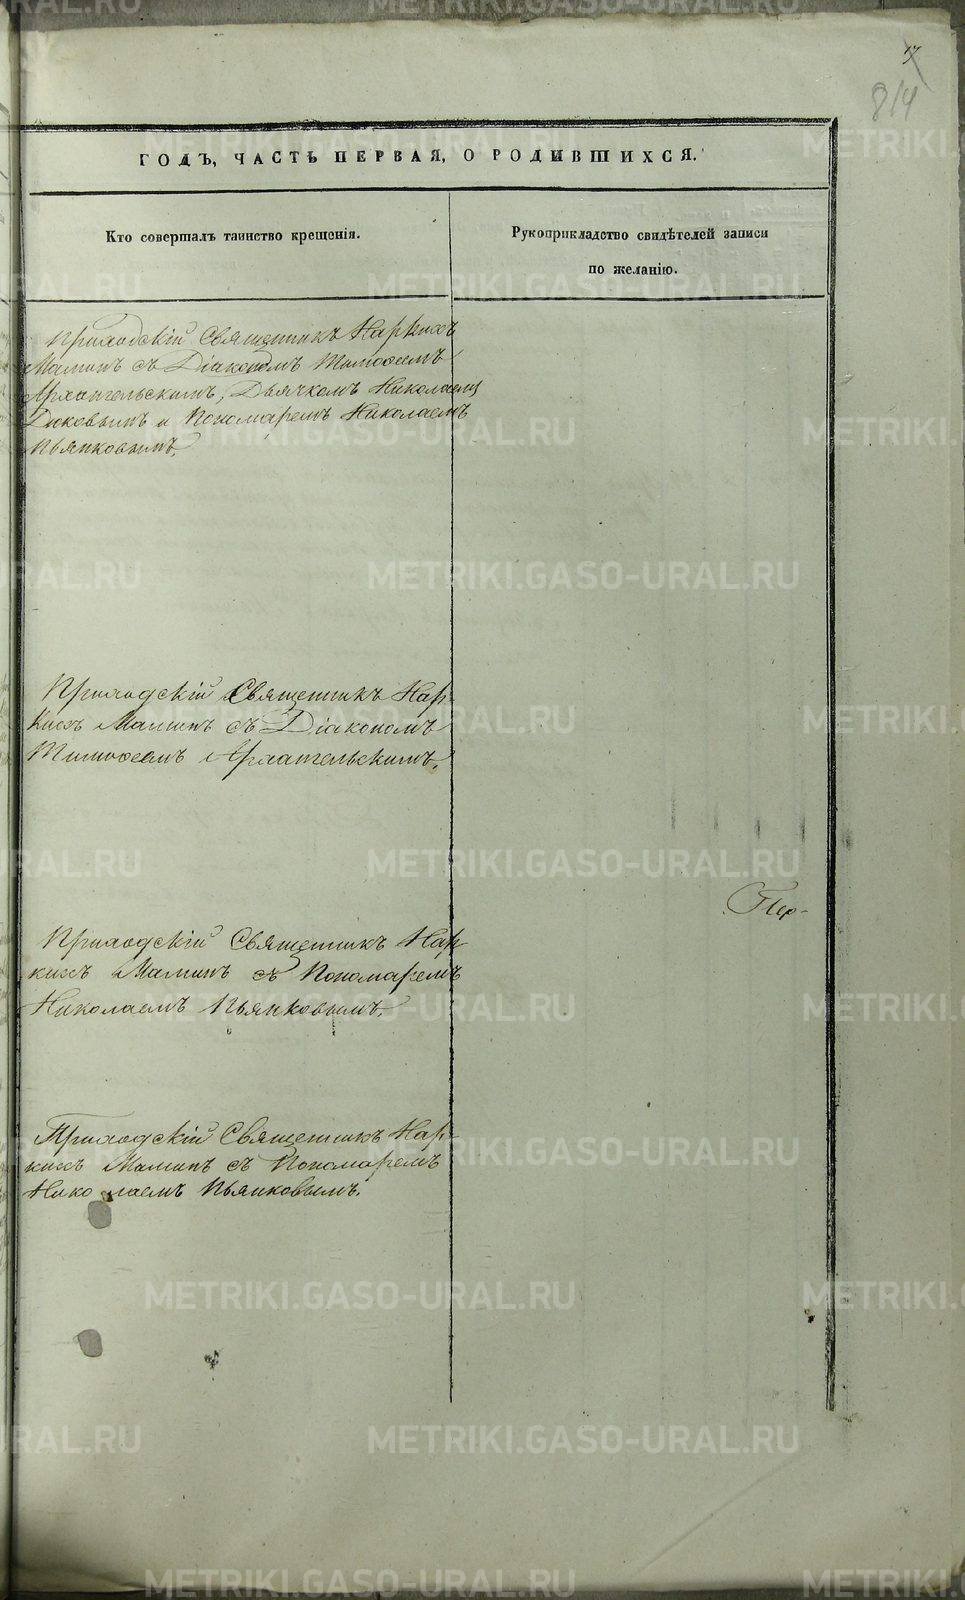 17
814
ГОДЪ, ЧАСТЬ ПЕРВАЯ, О РОДИВШИХСЯ.
Кто совершалъ таинство крещенія.
Рукоприкладство свидѣтелей записи
по желанію.
Приходскій Священникъ Наркисъ
Маминъ съ Діакономъ Тимофеемъ
Архангельскимъ, Дьячкомъ Николаемъ
и Пономаремъ Николаемъ
Пьянковымъ.
Приходскій Священникъ Нар-
кисъ Маминъ съ Діакономъ
Тимофеемъ Архангельскимъ.
Приходскій Священникъ Нар-
кисъ Маминъ съ Пономаремъ
Николаемъ Пьянковымъ.
Приходскій Священникъ Нар-
кисъ Маминъ съ Пономаремъ
Николаемъ Пьянковымъ.
METRIKI.GASO-URAL.RU